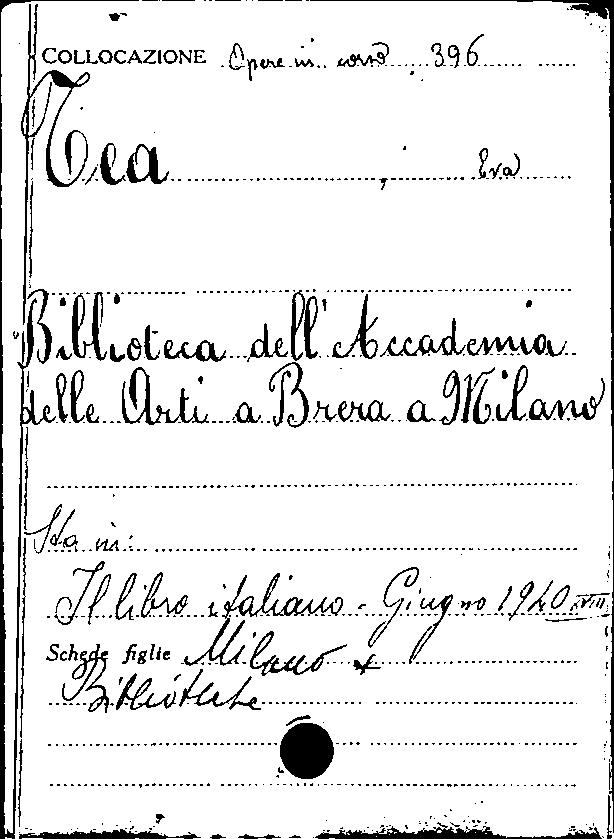 COLLOCAZIONE Opere in corso 396
Tea , Eva
Biblioteca dell'Accademia
delle Arti a Brera a Milano
Sta in:
Il libro italiano - Giugno 1940 XVIII
Schede figlie Milano *
Biblioteche